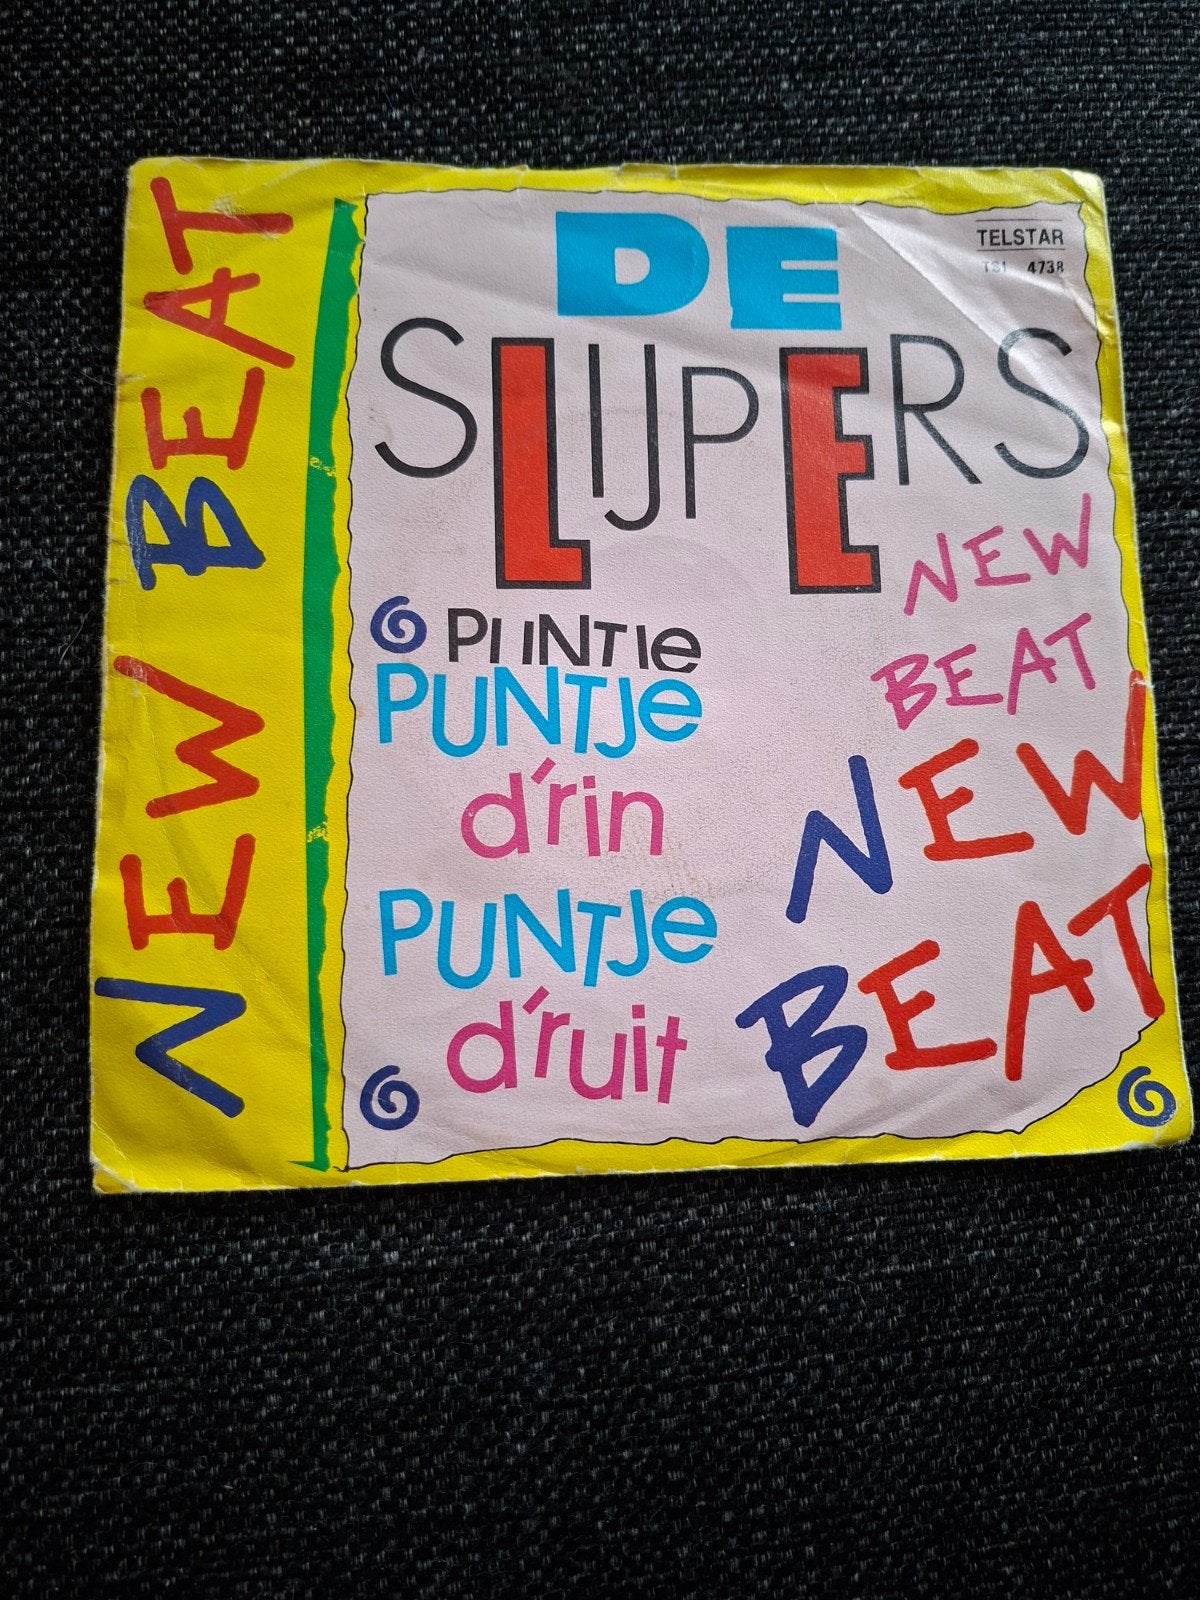 NEW BEAT
DE
SLIJPERS
TELSTAR
4738
NEW
BEAT
PUNTJE
PUNTJE
d'rin
PUNTJE
d'ruit
NEW
BEAT